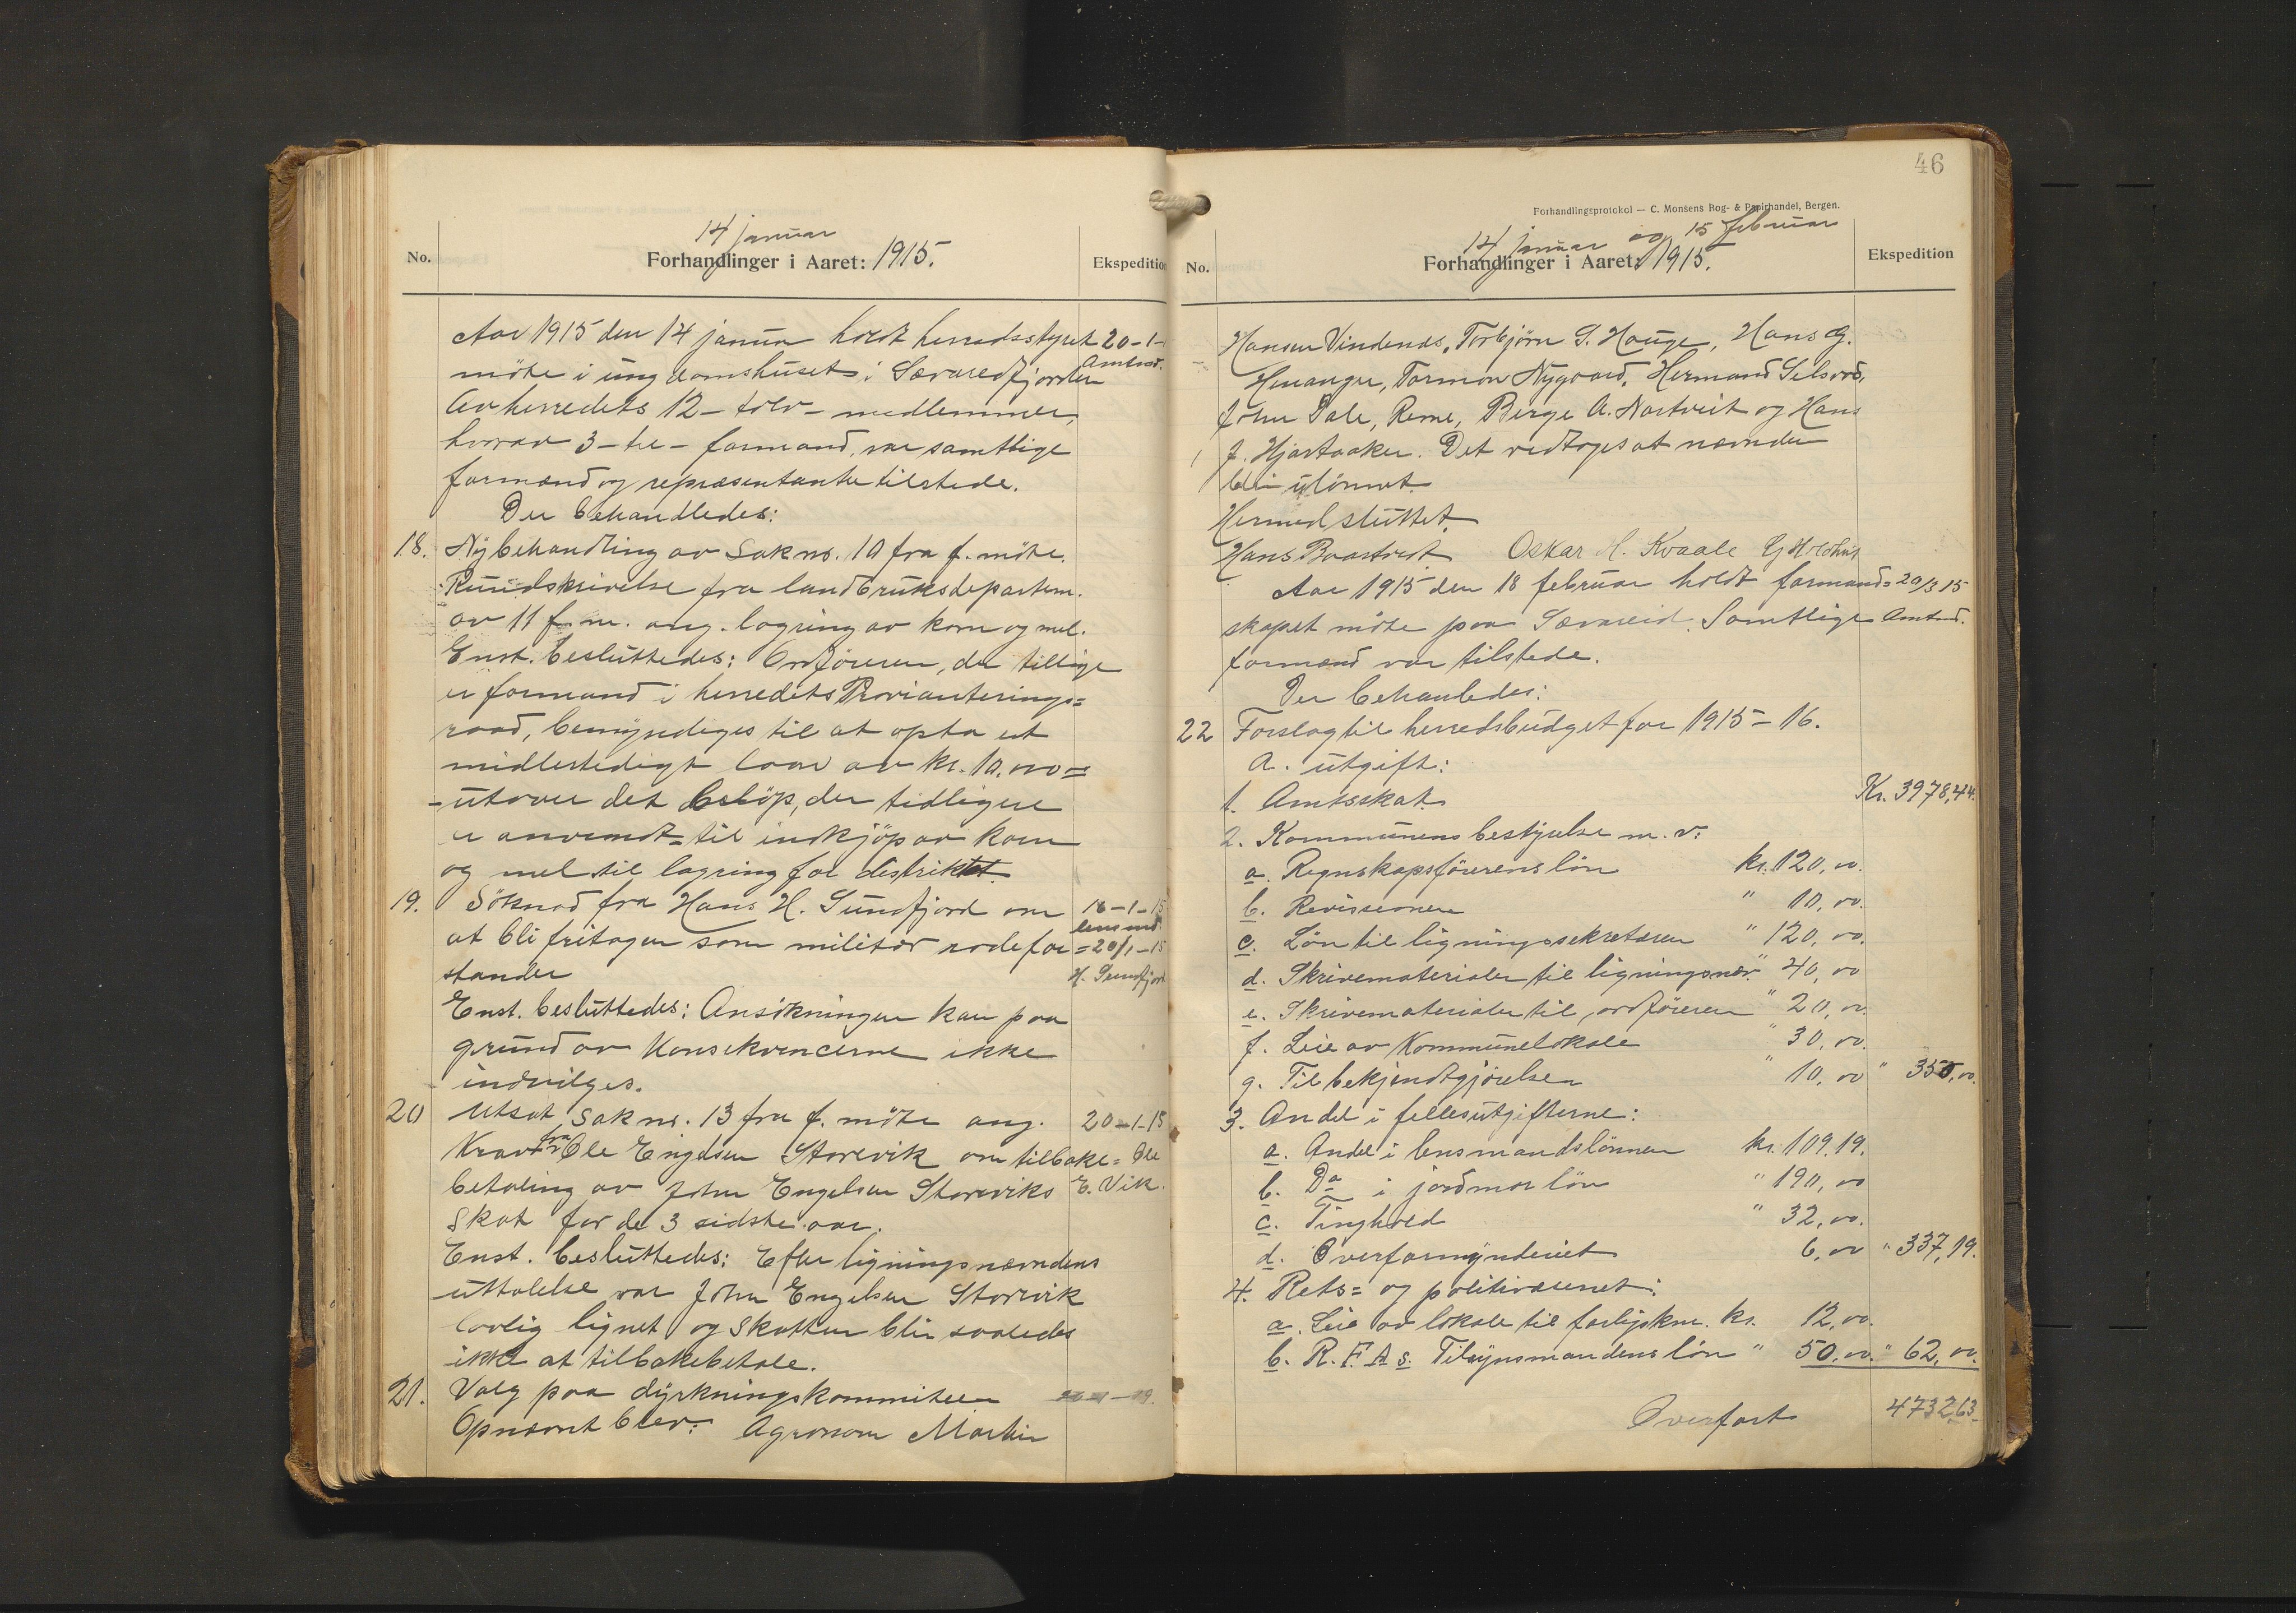 14 januar
No.
Forhandlinger i Aaret: 1915.
Ekspedition
Aar 1915 den 14 januar holdt herredsstyret
20-1-
Amtmd.
møte i ungdomshuset i Sævareidfjorden
Av herredets 12 - tolv - medlemmer,
hvorav 3 - tre - formænd, var samtlige
formænd og repræsentanter tilstede.
Der behandledes:
18. Ny behandling av Sak nr. 10 fra f. møte.
Rundskrivelse fra landbruksdepartem.
av 11 f. m. ang. lagring av korn og mel.
Enst. besluttedes: Ordføreren, der tillige
er formand i herredets Provianterings=
raad, bemyndiges til at opta et
midlertidigt laan av kr. 10,000=
- utover det beløp, der tidligere
er anvendt= til indkjøp av korn
og mel til lagring for distriktet.
19. Søknad fra Hans H. Sundfjord om
16-1-15
lensmd.
at bli fritagen som militær rodefor=
20/1-15
stander
H. Sundfjord
Enst. besluttedes: Ansøkningen kan paa
grund av Konsekvencerne ikke
indvilges.
20 Utsat sak nr. 13 fra f. møte ang.
20-1-15
Krav fra Ole Engelsen Storevik om tilbake=
Ole
betaling av John Engelsen Storeviks
E. Vik.
skat for de 3 sidste aar.
Enst. besluttedes: Efter ligningsnævndens
uttalelse var John Engelsen Storevik
lovlig lignet og skatten blir saaledes
ikke at tilbakebetale.
21. Valg paa dyrkningskommiteen
Opnævnt blev: Agronom Martin
46
Forhandlingsprotokol — C. Monsens Bog- & Papirhandel, Bergen.
14 januar og 15 februar
No.
Forhandlinger i Aaret: 1915.
Ekspedition
Hansen Vindenes, Torbjørn S. Hauge, Hans G.
Henanger, Tormon Nygaard, Hermand Selsvod,
John Dale, Reme, Berge A. Nortveit og Hans
J. Hjartaaker. Det vedtoges at nævnden
blir ulønnet.
Hermed sluttet.
Hans Baastveit Oskar H. Kvaale
Aar 1915 den 18 februar holdt formand=
20/3 15
skapet møte paa Sævareid. Samtlige
Amtmd.
formænd var tilstede.
Der behanledes:
22 Forslag til herredsbudget for 1915-16.
A. utgift:
1. Amtsskat Kr. 3978,44.
2. Kommunens bestyrelse m. v:
a. Regnskapsførerens løn kr. 120,00.
b. Revissionen " 10,00.
c. Løn til ligningssekretæren " 120,00.
d. Skrivematerialer til ligningsnæv. " 40,00
e. Skrivematerialer til ordføreren " 20,00.
f. Leie av Kommunelokale " 30,00.
g. Til bekjendtgjørelser " 10,00 " 350,00.
3. Andel i fellesutgifterne:
a. Andel i lensmandslønnen kr. 109.19.
b. Do i jordmorløn " 190,00
c. Tinghold " 32,00.
d. Overformynderiet 6,00 " 337,19.
4. Rets= og politivæsenet:
a. Leie av lokale til forligskm. kr. 12,00.
b. R. F. A. s. Tilsynsmandens løn " 50,00. " 62,00.
Overført 4732,63